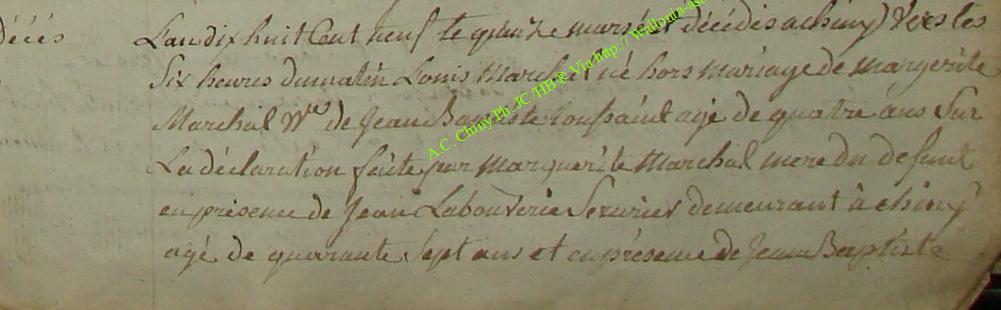 Décés
L'an dix huit Cent neuf le quinze mars est décédés a chiny vers les
Six heures du matin Louis Marchal né hors mariage de margerite
Marchal Ve de Jean Baptiste toussaint agé de quatre ans Sur
La déclaration faite par marguerite Marchal mere du defunt
en présence de Jean Labouverie Serurier demeurant à chiny
agé de quarante Sept ans et en présence de Jean Baptiste
A.C. Chiny Ph. JC/HB & Via http:// Wallonia-as